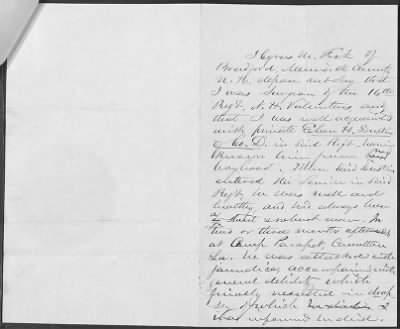 I Cyrus M. Fisk of
Bradford, Merrimack County
N.H. depose and say that
I was Surgeon of the 16th
Regt. N.H. Volunteers and
that I was well acquainted
with private Eben H. Dustin
of Co. D. in said Regt. having
known him from my
boyhood. When said Dustin
entered the Service in said
Regt. he was well and
healthy, and had always been
a robust man. In
two or three months afterwards
at Camp Parapet, Carrollton
La. he was attacked with
jaundice accompanied with
general debility which
finally resulted in drop-
sy of which I
was informed he died.